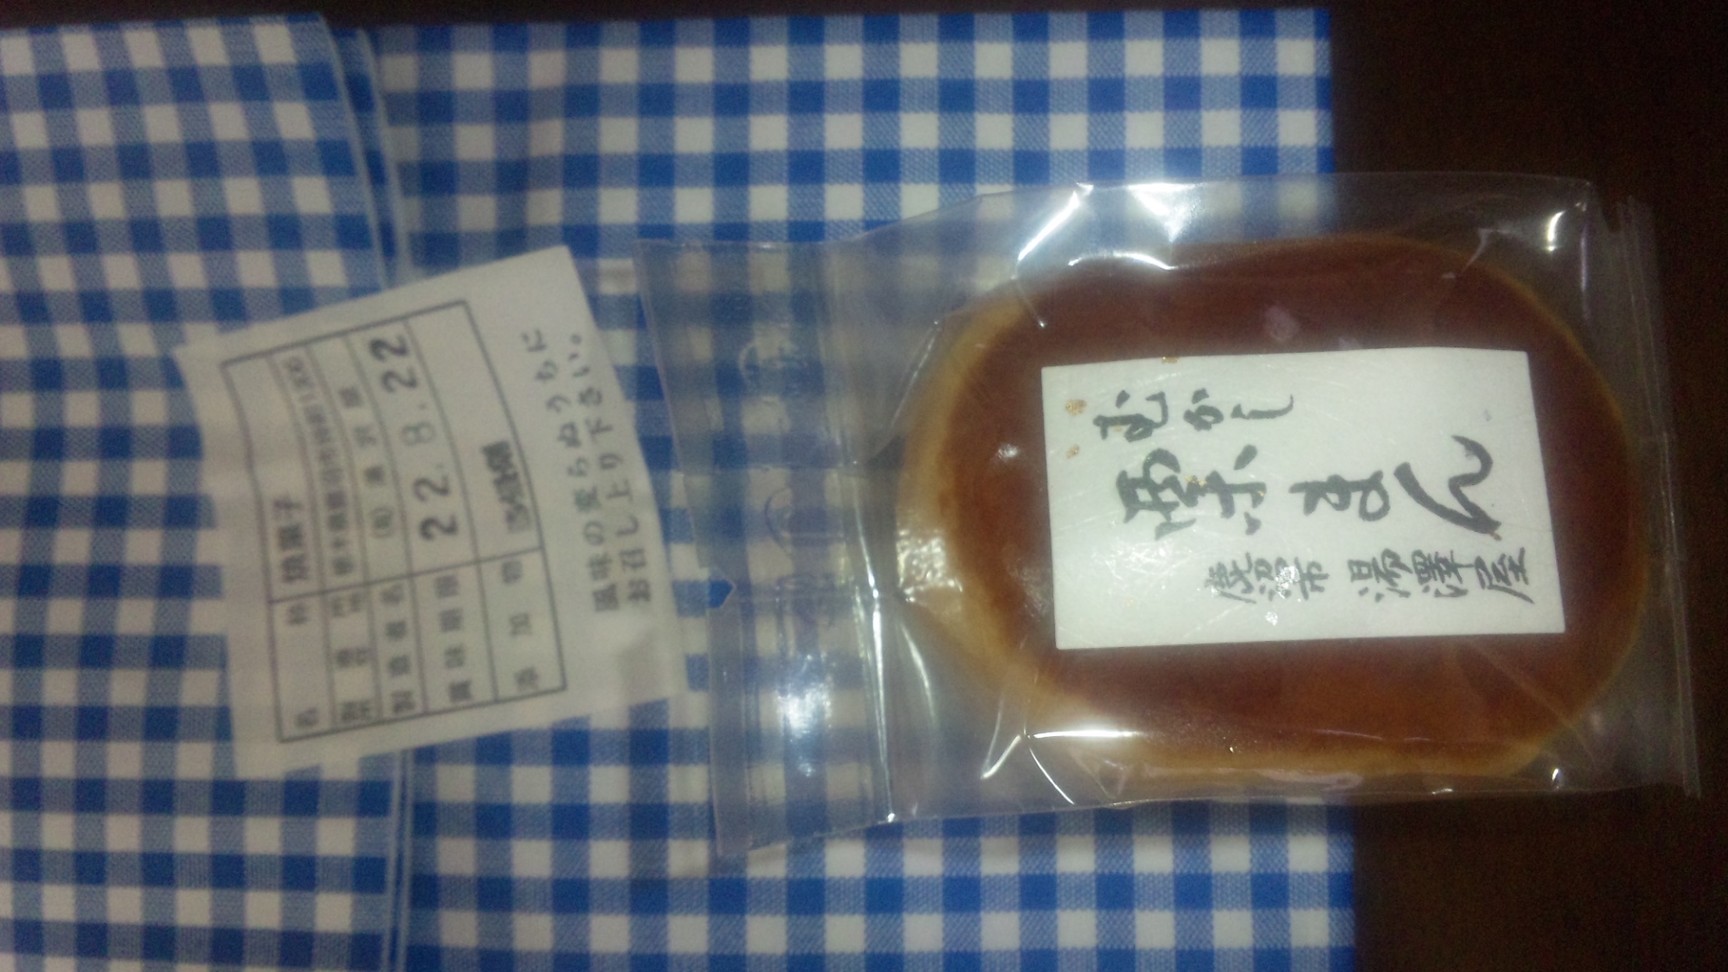 むかし
栗まん
鹿沼市 湯澤屋
名 称 焼菓子
製造者名 (有)湯沢屋
賞味期限 22.8.22
添 加 物
風味の変らぬうちに
お召し上り下さい。